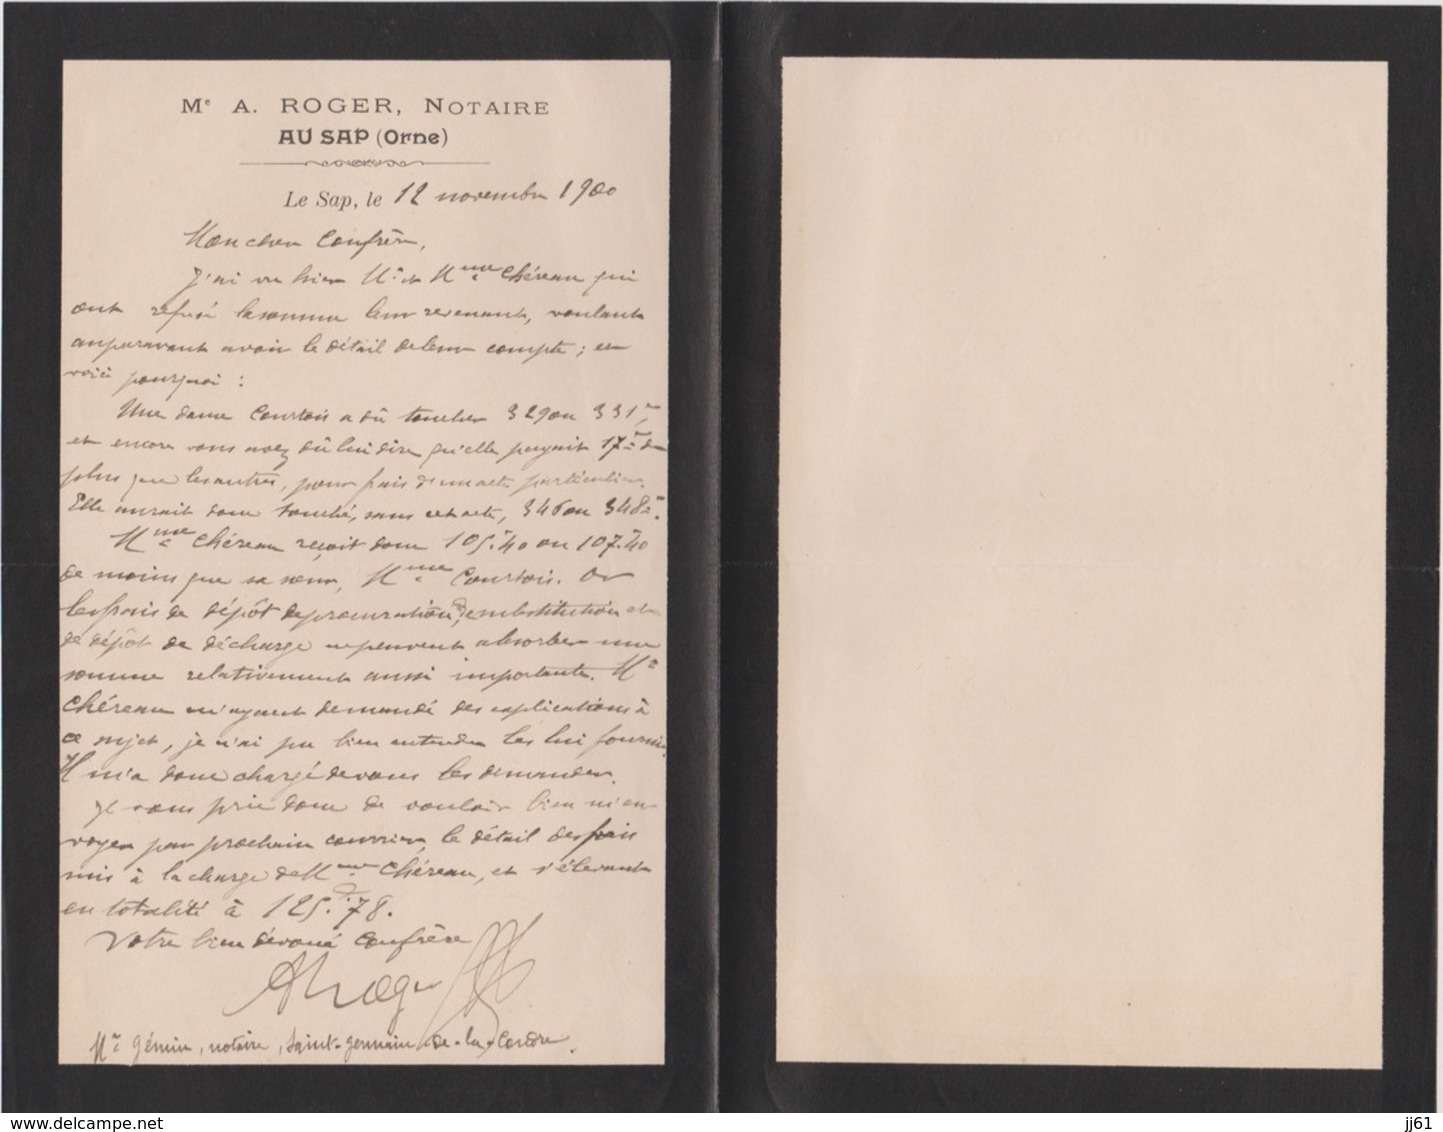 Me A. ROGER, NOTAIRE
AU SAP (Orne)
Le Sap, le 12 novembre 1900
Mon cher Confrère,
J'ai vu hier Mr et Mme Chéreau qui
ont refusé la somme leur revenant, voulant
auparavant avoir le détail de leur compte ; et
voici pourquoi :
Une dame Courtois a dû toucher 329 ou 331 fr,
et encore vous avez dû lui dire qu'elle payait 17 fr de
plus que les autres, pour frais d'un acte particulier.
Elle aurait donc touché, sans cet acte, 346 ou 348 fr.
Mme Chéreau reçoit donc 105.40 ou 107.40
de moins que sa sœur, Mme Courtois. Or
les frais de dépôt de procuration, de substitution et
de dépôt de décharge ne peuvent absorber une
somme relativement aussi importante. Mr
Chéreau m'ayant demandé des explications à
ce sujet, je n'ai pu bien entendu les lui fournir.
Il m'a donc chargé de vous les demander.
Je vous prie donc de vouloir bien m'en-
voyer par prochain courrier, le détail des frais
mis à la charge de Mme Chéreau, et s'élevant
en totalité à 125.78.
Votre bien dévoué Confrère
A Roger
Me Génin, notaire, Saint-Germain-de-la-Coudre.
Delcampe.net
jj61